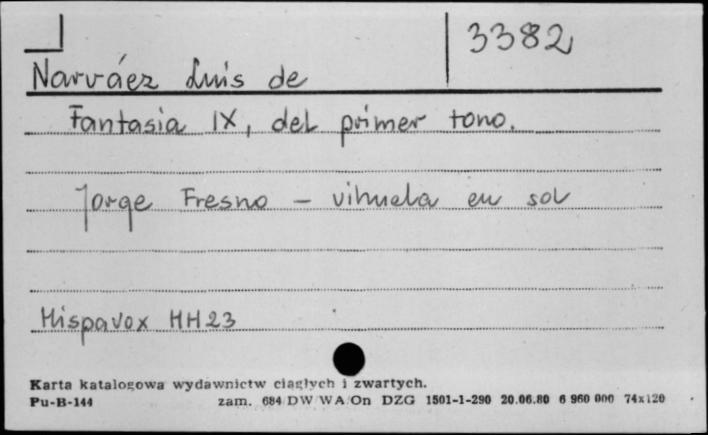 3382
Narváez Luis de
Fantasia IX, del primer tono.
Jorge Fresno – vihuela en sol
Hispavox HH23
Karta katalogowa wydawnictw ciągłych i zwartych.
Pu-B-144 zam. 684 DW WA/On DZG 1501-1-290 20.06.80 6 960 000 74x120